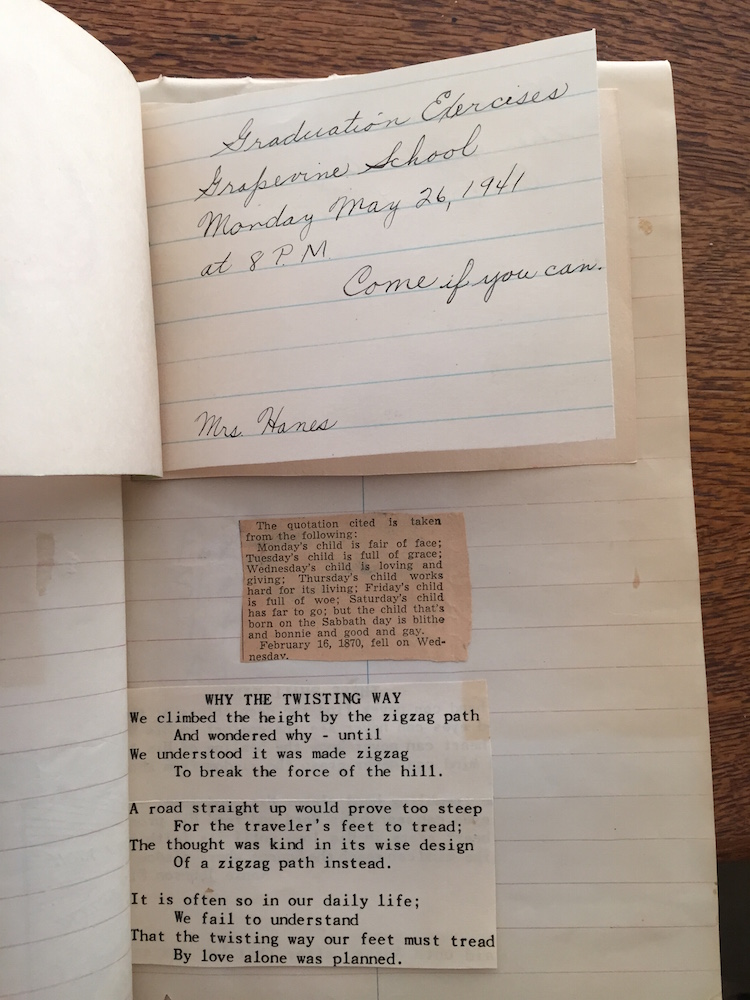 Graduation Exercises
Grapevine School
Monday May 26, 1941
at 8 P.M.
Come if you can.
Mrs. Hanes
The quotation cited is taken
from the following:
Monday's child is fair of face;
Tuesday's child is full of grace;
Wednesday's child is loving and
giving; Thursday's child works
hard for its living; Friday's child
is full of woe; Saturday's child
has far to go; but the child that's
born on the Sabbath day is blithe
and bonnie and good and gay.
February 16, 1870, fell on Wed-
nesday.
WHY THE TWISTING WAY
We climbed the height by the zigzag path
And wondered why - until
We understood it was made zigzag
To break the force of the hill.
A road straight up would prove too steep
For the traveler's feet to tread;
The thought was kind in its wise design
Of a zigzag path instead.
It is often so in our daily life;
We fail to understand
That the twisting way our feet must tread
By love alone was planned.